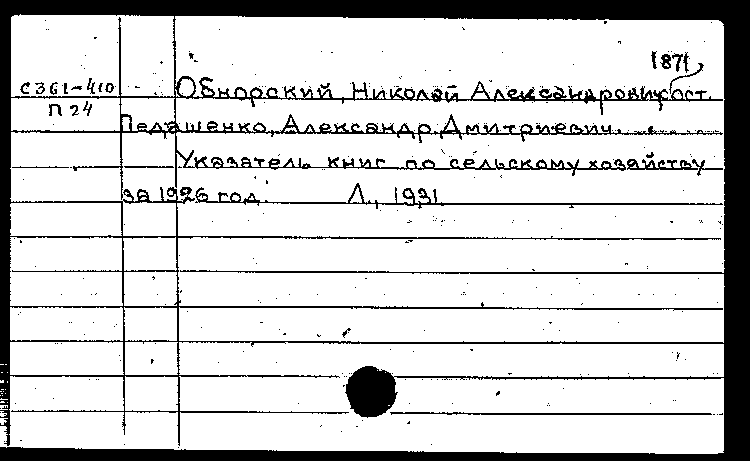 1871
С361-410 Обнорский, Николай Александрович, сост.
П24
Педашенко, Александр Дмитриевич.
Указатель книг по сельскому хозяйству
за 1926 год. Л., 1931.